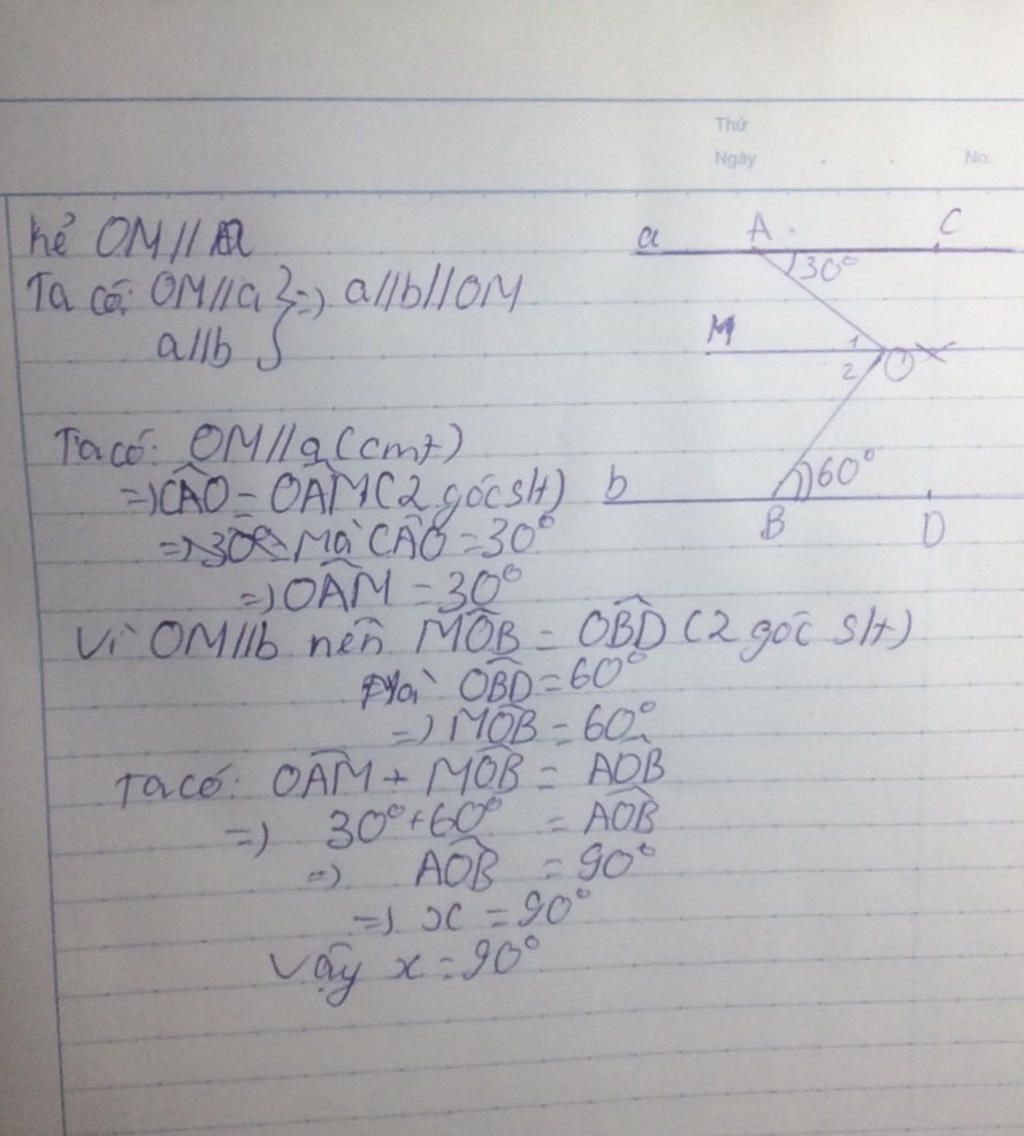 Thứ
Ngày
No.
kẻ OM//a
Ta có: OM//a } =) a//b//OM
a//b
Ta có: OM//a (cmt)
=) CÂO = OÂM (2 góc slt)
=) 30° = Mà CÂO = 30°
=) OÂM = 30°
Vì OM//b nên MÔB = OB̂D (2 góc slt)
Mà OB̂D = 60°
=) MÔB = 60°
Ta có: OÂM + MÔB = AÔB
=) 30° + 60° = AÔB
=) AÔB = 90°
=) x = 90°
Vậy x = 90°
a A C
30°
M 1 O x
2
60°
b B D